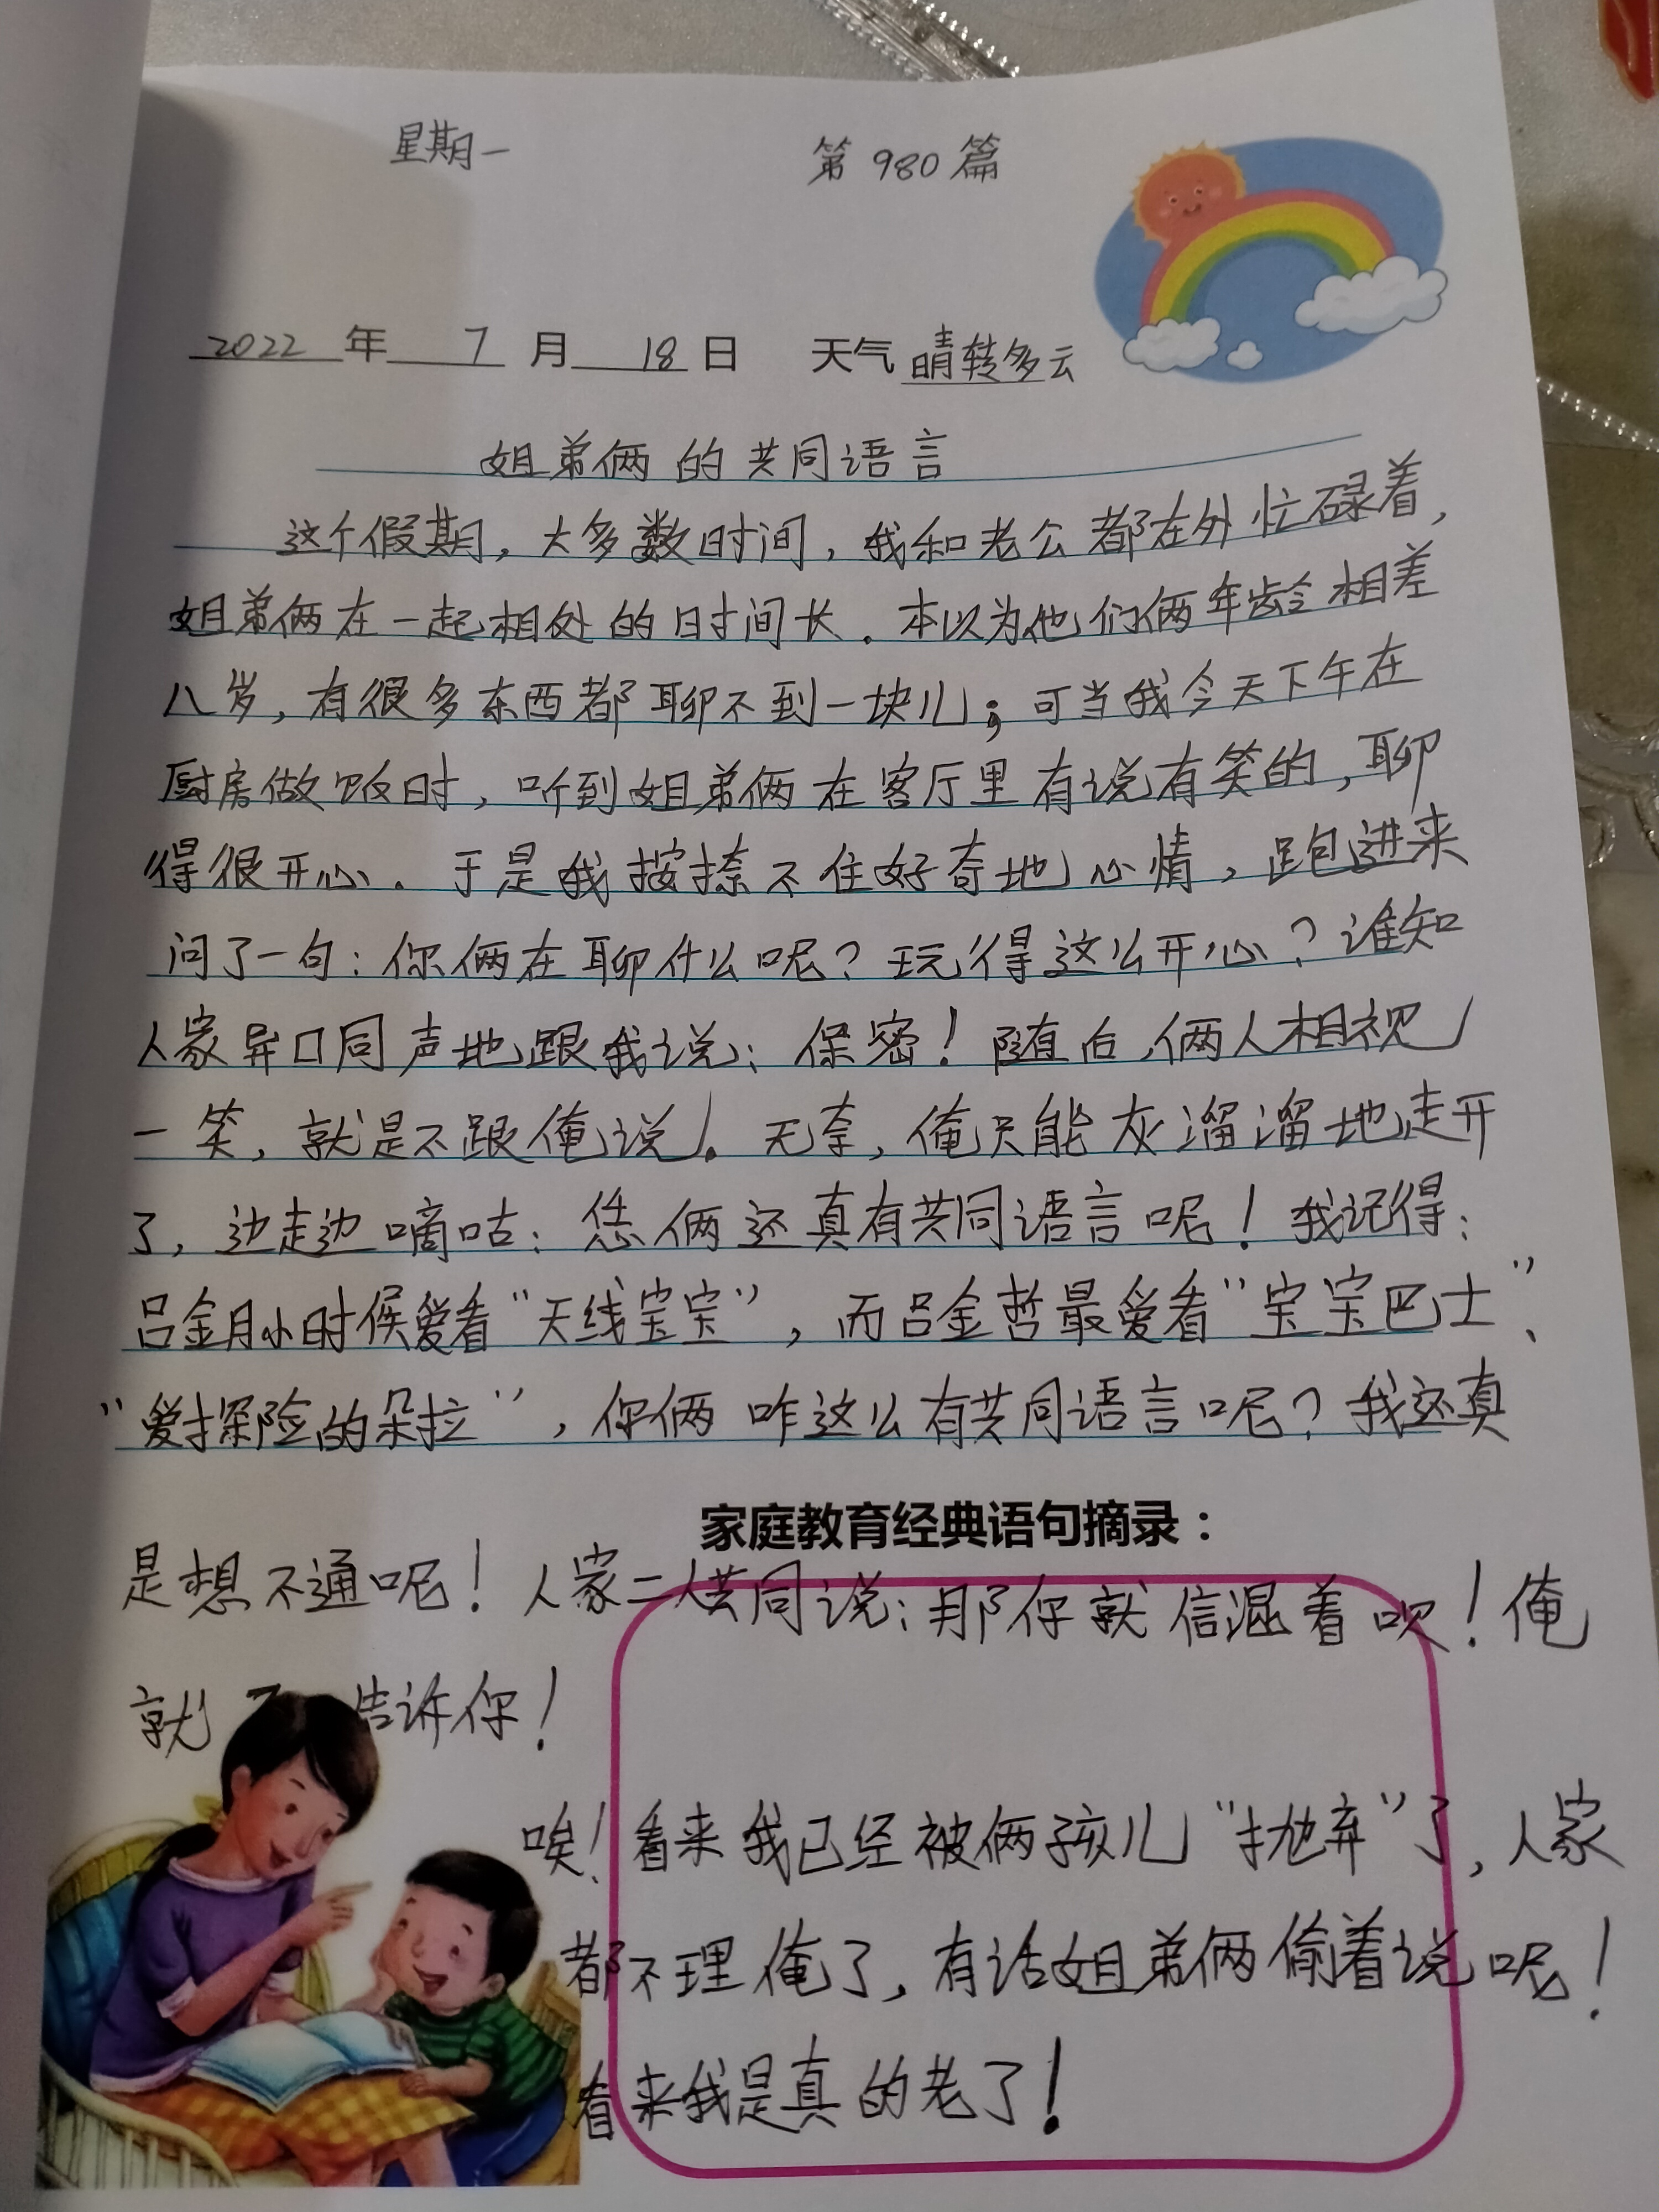 星期一 第980篇
2022年 7月 18日 天气 晴转多云
姐弟俩的共同语言
这个假期，大多数时间，我和老公都在外忙碌着，
姐弟俩在一起相处的时间长。本以为他们俩年龄相差
八岁，有很多东西都聊不到一块儿；可当我今天下午在
厨房做饭时，听到姐弟俩在客厅里有说有笑的，聊
得很开心。于是我按捺不住好奇地心情，跑进来
问了一句：你俩在聊什么呢？玩得这么开心？谁知
人家异口同声地跟我说：保密！随后，俩人相视
一笑，就是不跟俺说。无奈，俺只能灰溜溜地走开
了，边走边嘀咕：恁俩还真有共同语言呢！我记得：
吕金月小时候爱看“天线宝宝”，而吕金哲最爱看“宝宝巴士”、
“爱探险的朵拉”，你俩咋这么有共同语言呢？我还真
家庭教育经典语句摘录：
是想不通呢！人家二人共同说：那你就信混着呗！俺
就不告诉你！
唉！看来我已经被俩孩儿“抛弃”了，人家
都不理俺了，有话姐弟俩偷着说呢！
看来我是真的老了！